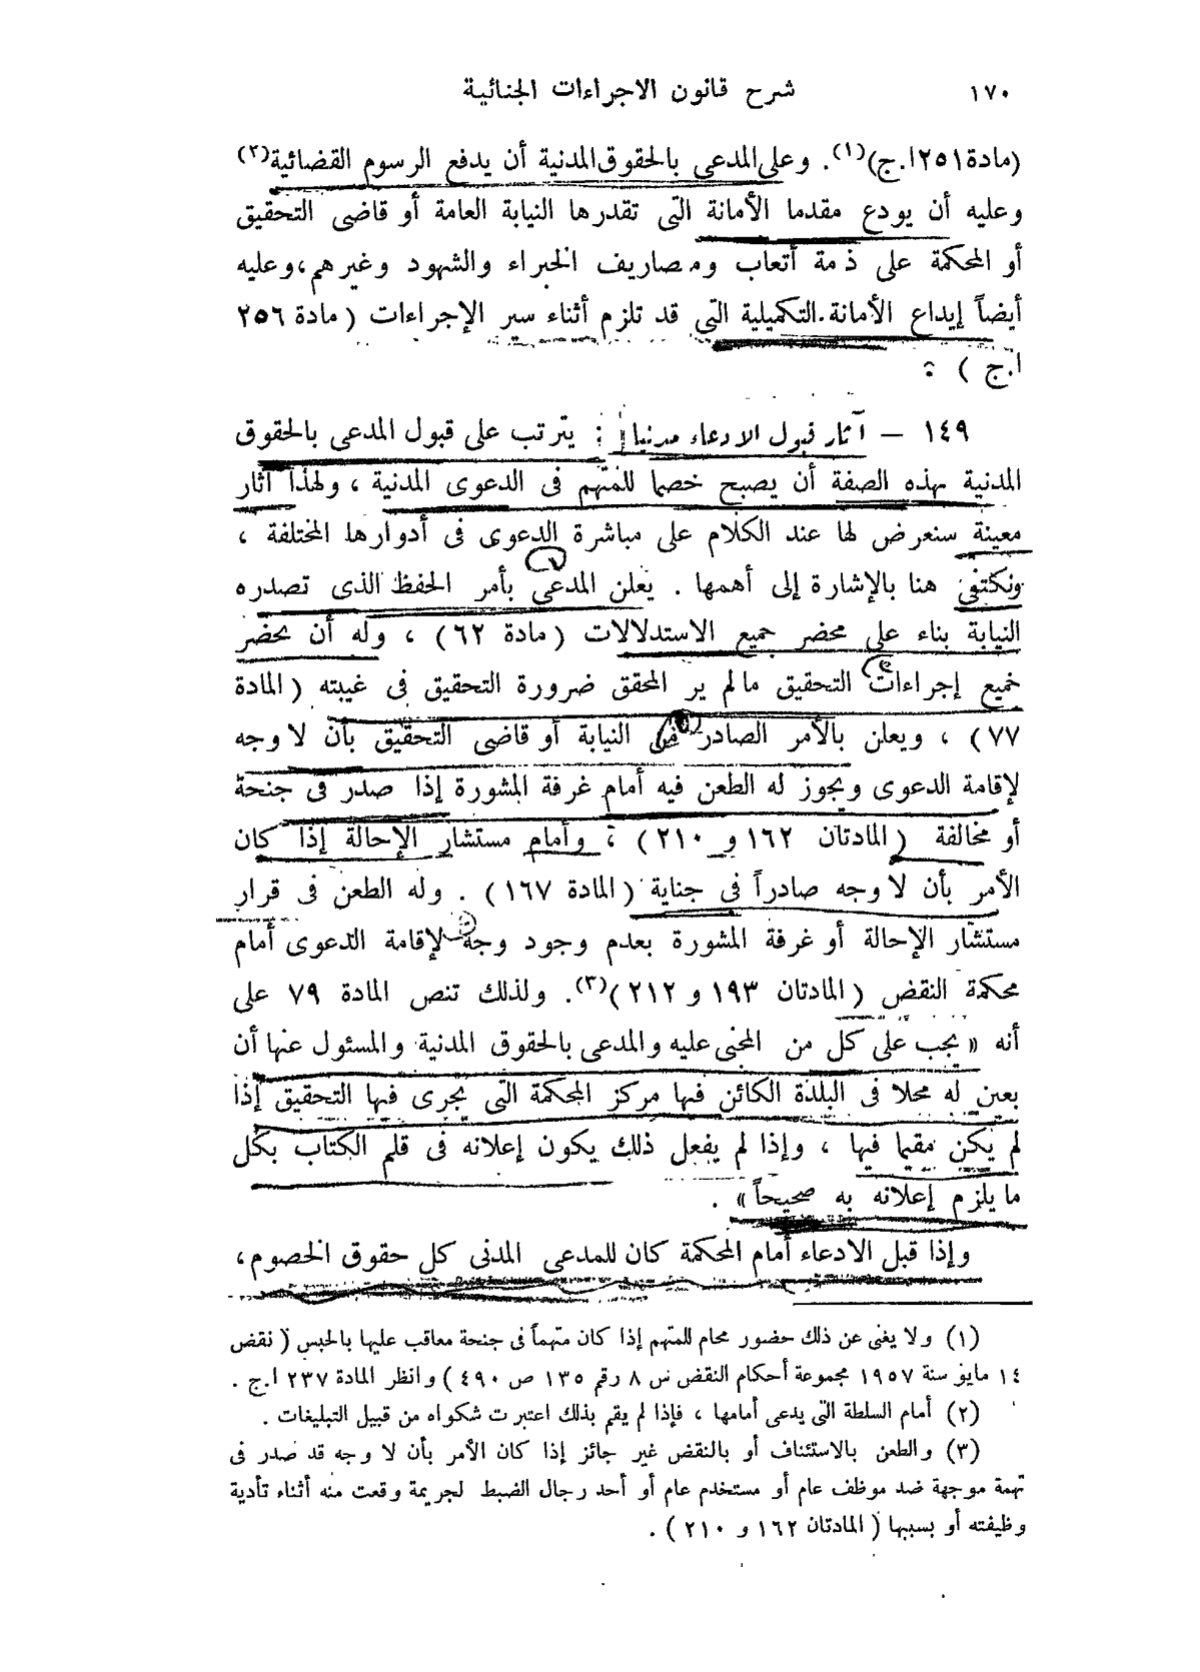 ١٧٠
شرح قانون الاجراءات الجنائية
(مادة ٢٥١ ا.ج)(١). وعلى المدعى بالحقوق المدنية أن يدفع الرسوم القضائية(٢)
وعليه أن يودع مقدما الأمانة التى تقدرها النيابة العامة أو قاضى التحقيق
أو المحكمة على ذمة أتعاب ومصاريف الخبراء والشهود وغيرهم، وعليه
أيضاً إيداع الأمانة التكميلية التى قد تلزم أثناء سير الإجراءات ( مادة ٢٥٦
ا.ج ) :
١٤٩ — آثار قبول الادعاء مدنيا : يترتب على قبول المدعى بالحقوق
المدنية بهذه الصفة أن يصبح خصما للمتهم فى الدعوى المدنية ، ولهذا آثار
معينة سنعرض لها عند الكلام على مباشرة الدعوى فى أدوارها المختلفة ،
ونكتفى هنا بالإشارة إلى أهمها . يعلن المدعى بأمر الحفظ الذى تصدره
النيابة بناء على محضر جميع الاستدلالات ( مادة ٦٢ ) ، وله أن يحضر
جميع إجراءات التحقيق ما لم ير المحقق ضرورة التحقيق فى غيبته ( المادة
٧٧ ) ، ويعلن بالأمر الصادر من النيابة أو قاضى التحقيق بأن لا وجه
لإقامة الدعوى ويجوز له الطعن فيه أمام غرفة المشورة إذا صدر فى جنحة
أو مخالفة ( المادتان ١٦٢ و ٢١٠ ) ، وأمام مستشار الإحالة إذا كان
الأمر بأن لا وجه صادراً فى جناية ( المادة ١٦٧ ) . وله الطعن فى قرار
مستشار الإحالة أو غرفة المشورة بعدم وجود وجه لإقامة الدعوى أمام
محكمة النقض ( المادتان ١٩٣ و ٢١٢ )(٣). ولذلك تنص المادة ٧٩ على
أنه « يجب على كل من المجنى عليه والمدعى بالحقوق المدنية والمسئول عنها أن
يعين له محلا فى البلدة الكائن فيها مركز المحكمة التى يجرى فيها التحقيق إذا
لم يكن مقيما فيها ، وإذا لم يفعل ذلك يكون إعلانه فى قلم الكتاب بكل
ما يلزم إعلانه به صحيحاً » .
وإذا قبل الادعاء أمام المحكمة كان للمدعى المدنى كل حقوق الخصوم،
(١) ولا يغنى عن ذلك حضور محام للمتهم إذا كان متهماً فى جنحة معاقب عليها بالحبس ( نقض
١٤ مايو سنة ١٩٥٧ مجموعة أحكام النقض س ٨ رقم ١٣٥ ص ٤٩٠ ) وانظر المادة ٢٣٧ ا.ج .
(٢) أمام السلطة التى يدعى أمامها ، فإذا لم يقم بذلك اعتبرت شكواه من قبيل التبليغات .
(٣) والطعن بالاستئناف أو بالنقض غير جائز إذا كان الأمر بأن لا وجه قد صدر فى
تهمة موجهة ضد موظف عام أو مستخدم عام أو أحد رجال الضبط لجريمة وقعت منه أثناء تأدية
وظيفته أو بسببها ( المادتان ١٦٢ و ٢١٠ ) .